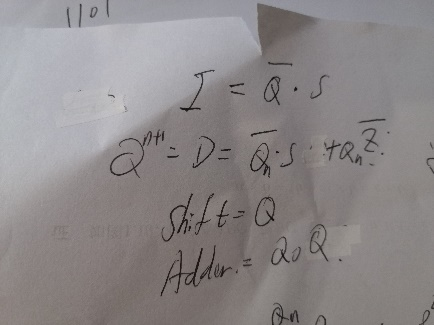 1101
I = Q̅ · S
Qⁿ⁺¹ = D = Q̅ₙ · S + Qₙ Z̅.
Shift = Q
Adder. = Q₀ Q.
Qn